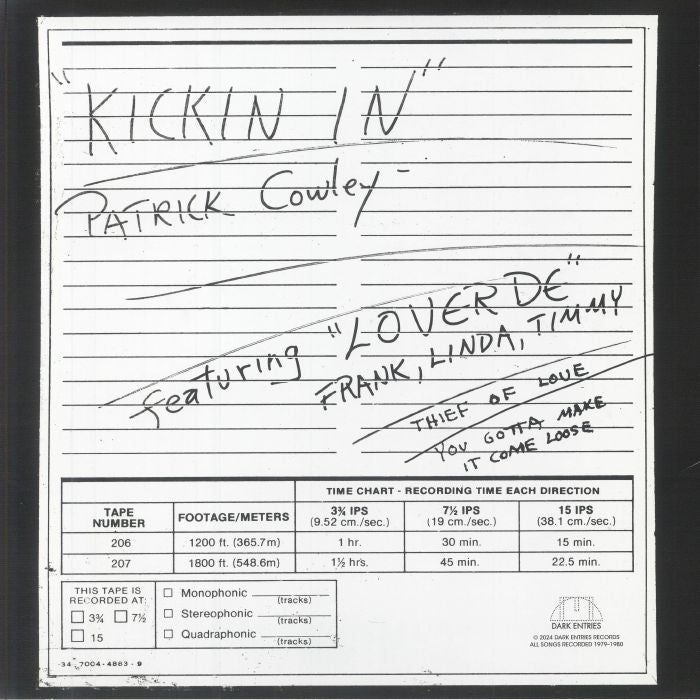 "KICKIN IN"
PATRICK Cowley -
featuring "LOVERDE"
FRANK, LINDA, TIMMY
THIEF OF LOVE
YOU GOTTA MAKE
IT COME LOOSE
TIME CHART - RECORDING TIME EACH DIRECTION
TAPE NUMBER FOOTAGE/METERS 3¾ IPS (9.52 cm./sec.) 7½ IPS (19 cm./sec.) 15 IPS (38.1 cm./sec.)
206 1200 ft. (365.7m) 1 hr. 30 min. 15 min.
207 1800 ft. (548.6m) 1½ hrs. 45 min. 22.5 min.
THIS TAPE IS
RECORDED AT:
☐ 3¾ ☐ 7½
☐ 15
☐ Monophonic ______ (tracks)
☐ Stereophonic ______ (tracks)
☐ Quadraphonic ______ (tracks)
DARK ENTRIES
© 2024 DARK ENTRIES RECORDS
ALL SONGS RECORDED 1979-1980
34-7004-4863-9